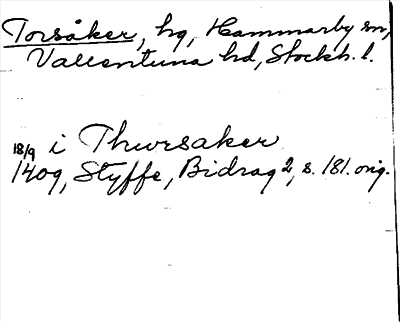 Torsåker, hg, Hammarby sn,
Vallentuna hd, Stockh. l.
18/9 i Thursaker
1409, Styffe, Bidrag 2, s. 181. orig.